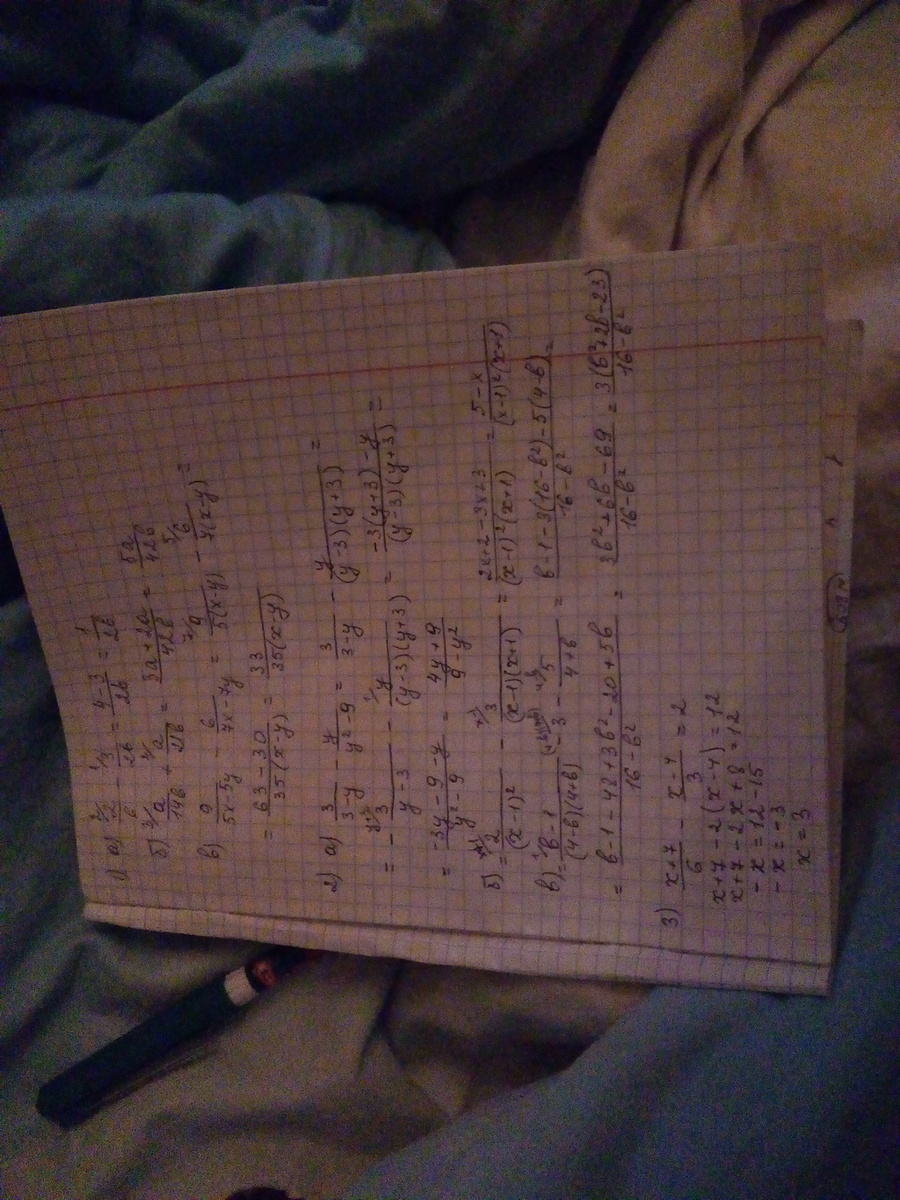 1) а) 2/b - 3/2b = 4-3/2b = 1/2b
б) a/14b + a/21b = 3a+2a/42b = 5a/42b
в) 9/5x-5y - 6/7x-7y = 9/5(x-y) - 6/7(x-y) =
= 63-30/35(x-y) = 33/35(x-y)
2) а) 3/3-y - y/y²-9 = 3/3-y - y/(y-3)(y+3) =
= - 3/y-3 - y/(y-3)(y+3) = -3(y+3)-y/(y-3)(y+3) =
= -3y-9-y/y²-9 = 4y+9/9-y²
б) = 2/(x-1)² - 3/(x-1)(x+1) = 2x+2-3x+3/(x-1)²(x+1) = 5-x/(x-1)²(x+1)
в) = b-1/(4-b)(4+b) - 3 - 5/4+b = b-1-3(16-b²)-5(4-b)/16-b² =
= b-1-48+3b²-20+5b/16-b² = 3b²+6b-69/16-b² = 3(b²+2b-23)/16-b²
3) x+7/6 - x-4/3 = 2
x+7-2(x-4)=12
x+7-2x+8=12
-x=12-15
-x=-3
x=3